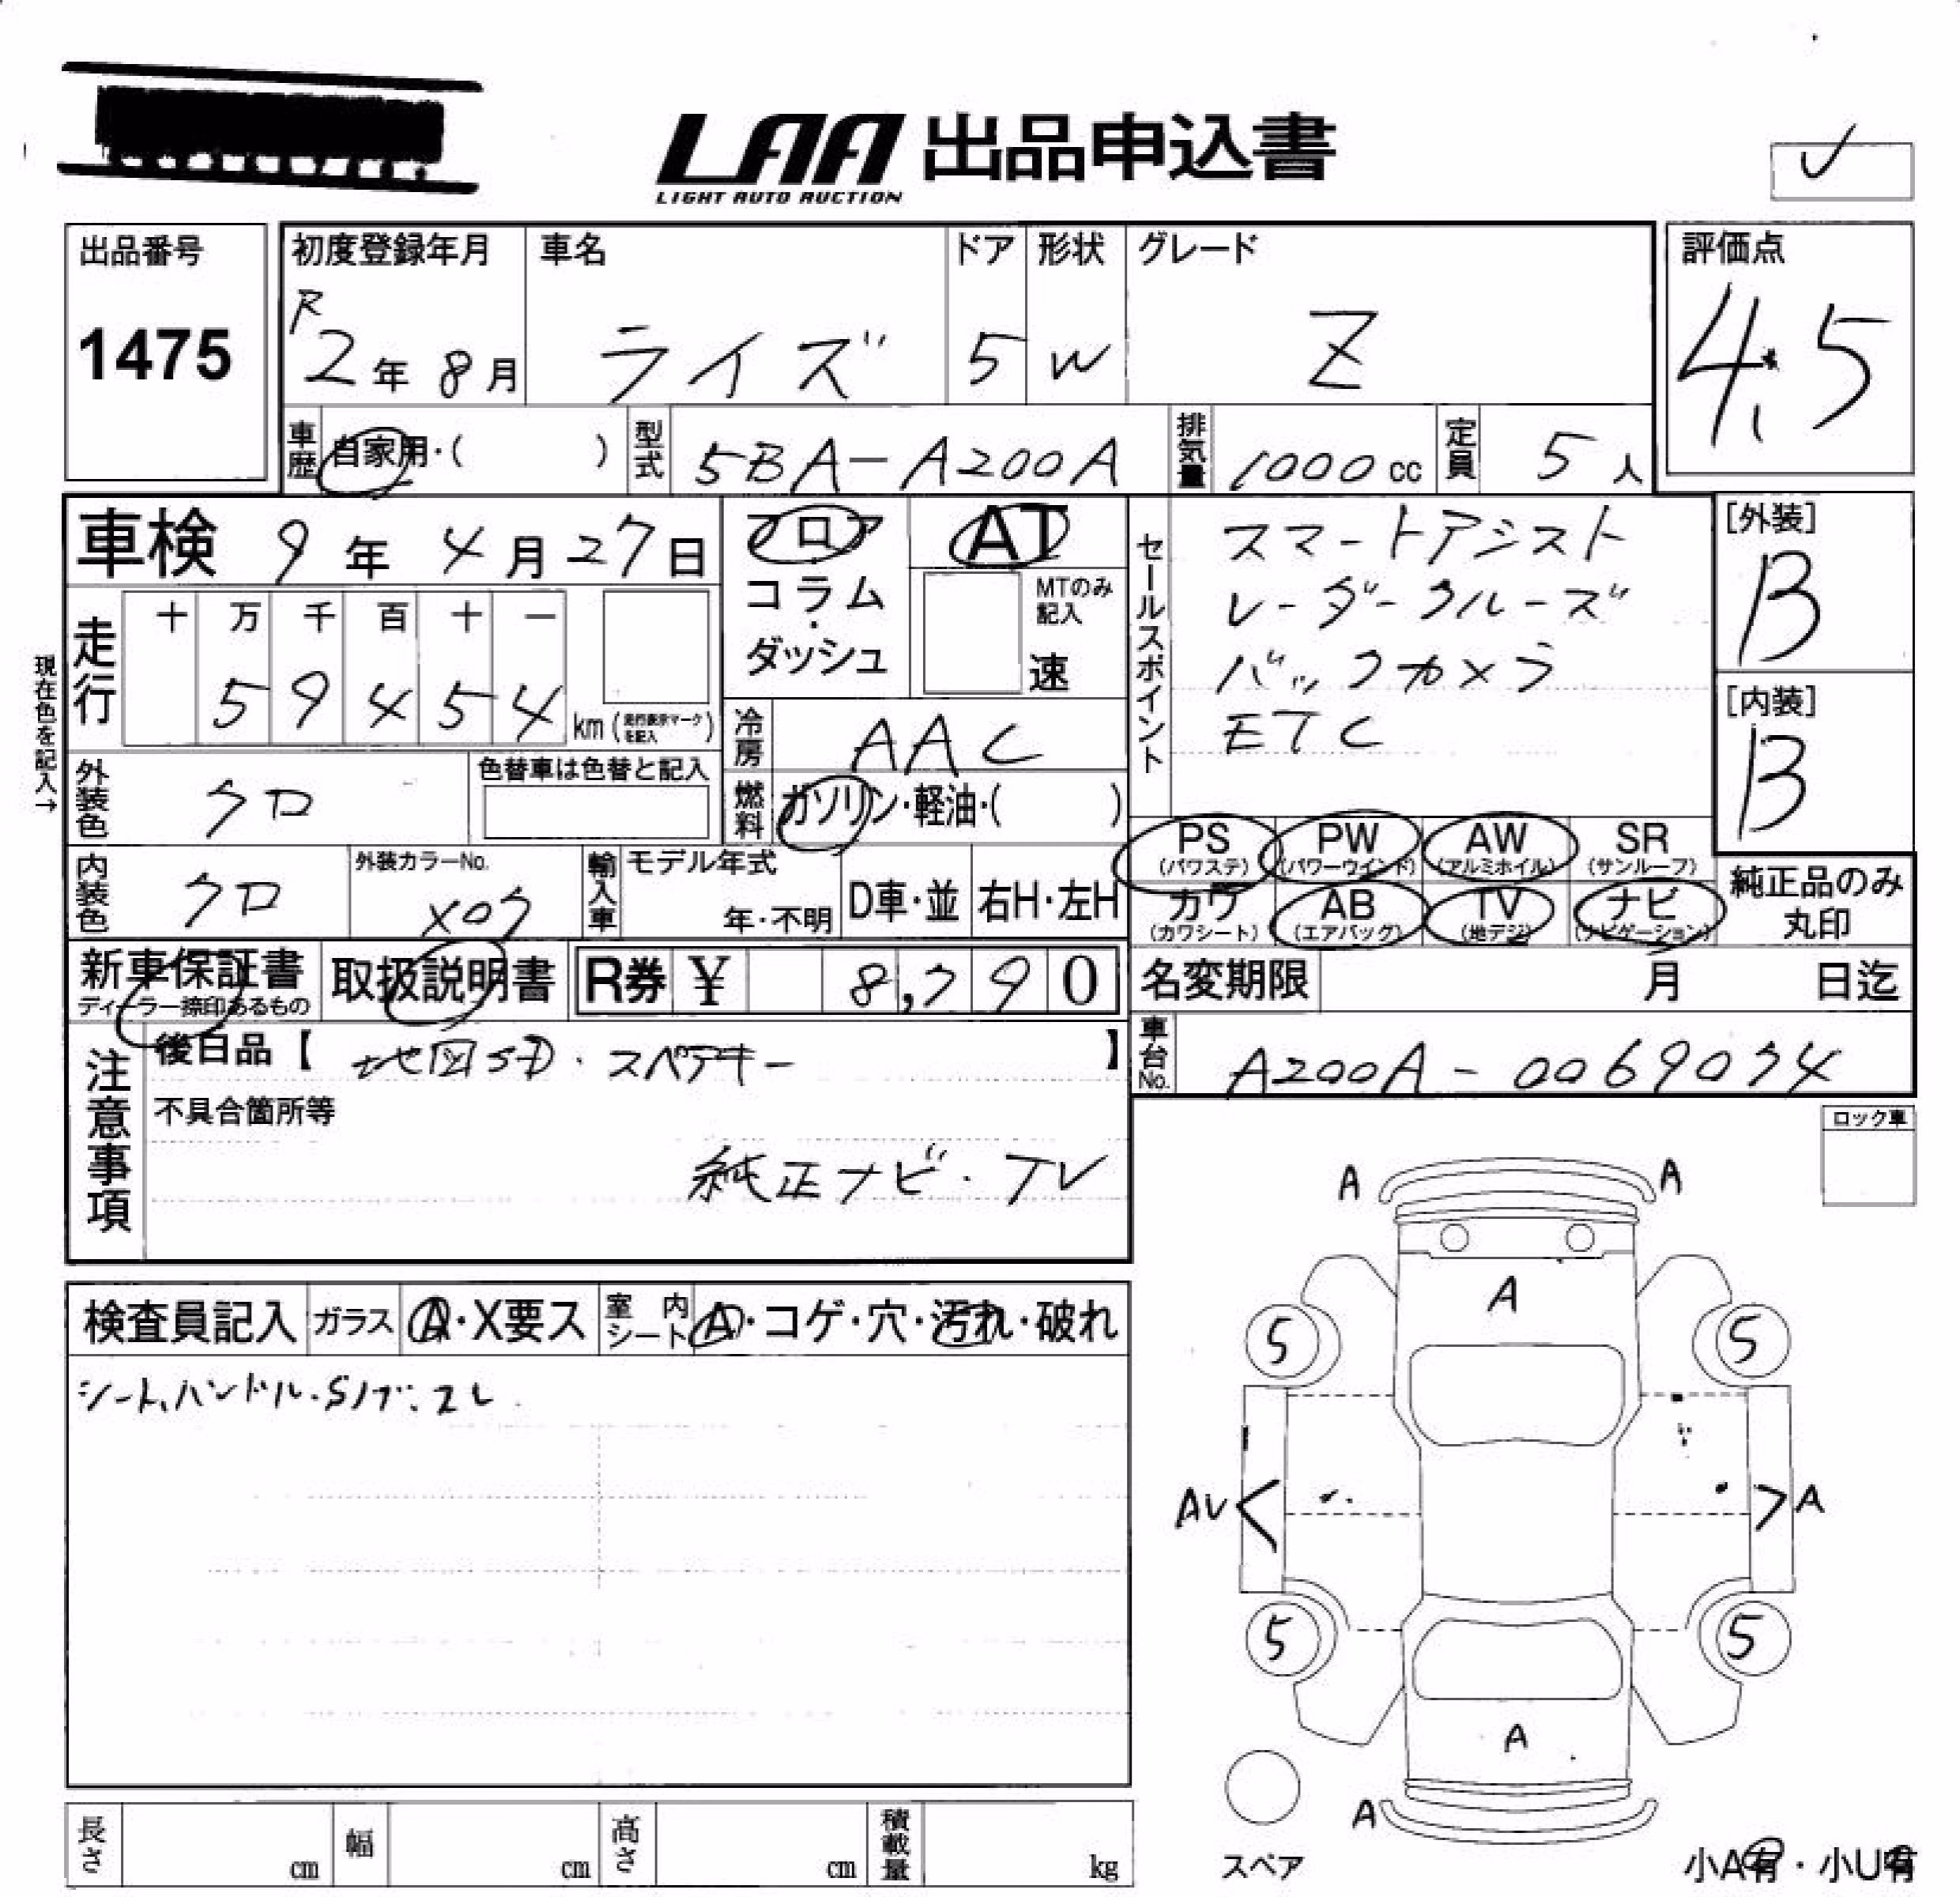 LAA 出品申込書
LIGHT AUTO AUCTION
出品番号
1475
初度登録年月
R
2年 8月
車名
ライズ
ドア
5
形状
W
グレード
Z
評価点
4.5
車歴
自家用・( )
型式
5BA-A200A
排気量
1000 cc
定員
5人
車検 9年 4月 27日
フロア
コラム・ダッシュ
AT
MTのみ記入
速
セールスポイント
スマートアシスト
レーダークルーズ
バックカメラ
ETC
[外装]
B
[内装]
B
現在色を記入→
走行
十 万 千 百 十 一
5 9 4 5 4 km (走行表示マークを記入)
冷房
AAC
外装色
クロ
色替車は色替と記入
燃料
ガソリン・軽油・( )
PS (パワステ)
PW (パワーウインド)
AW (アルミホイル)
SR (サンルーフ)
カワ (カワシート)
AB (エアバック)
TV (地デジ)
ナビ (ナビゲーション)
純正品のみ丸印
内装色
クロ
外装カラーNo.
X07
輸入車
モデル年式
年・不明
D車・並
右H・左H
新車保証書
ディーラー捺印あるもの
取扱説明書
R券 ¥ 8,790
名変期限 月 日迄
車台No.
A200A-0069074
注意事項
後日品【 地図SD・スペアキー 】
不具合箇所等
純正ナビ・TV
ロック車
検査員記入
ガラス
A・X要ス
室内シート
A・コゲ・穴・汚れ・破れ
シート、ハンドル・Sノブ:スレ
A A
A
5 5
AV A
5 5
A
A
スペア
小A有・小U有
長さ cm
幅 cm
高さ cm
積載量 kg